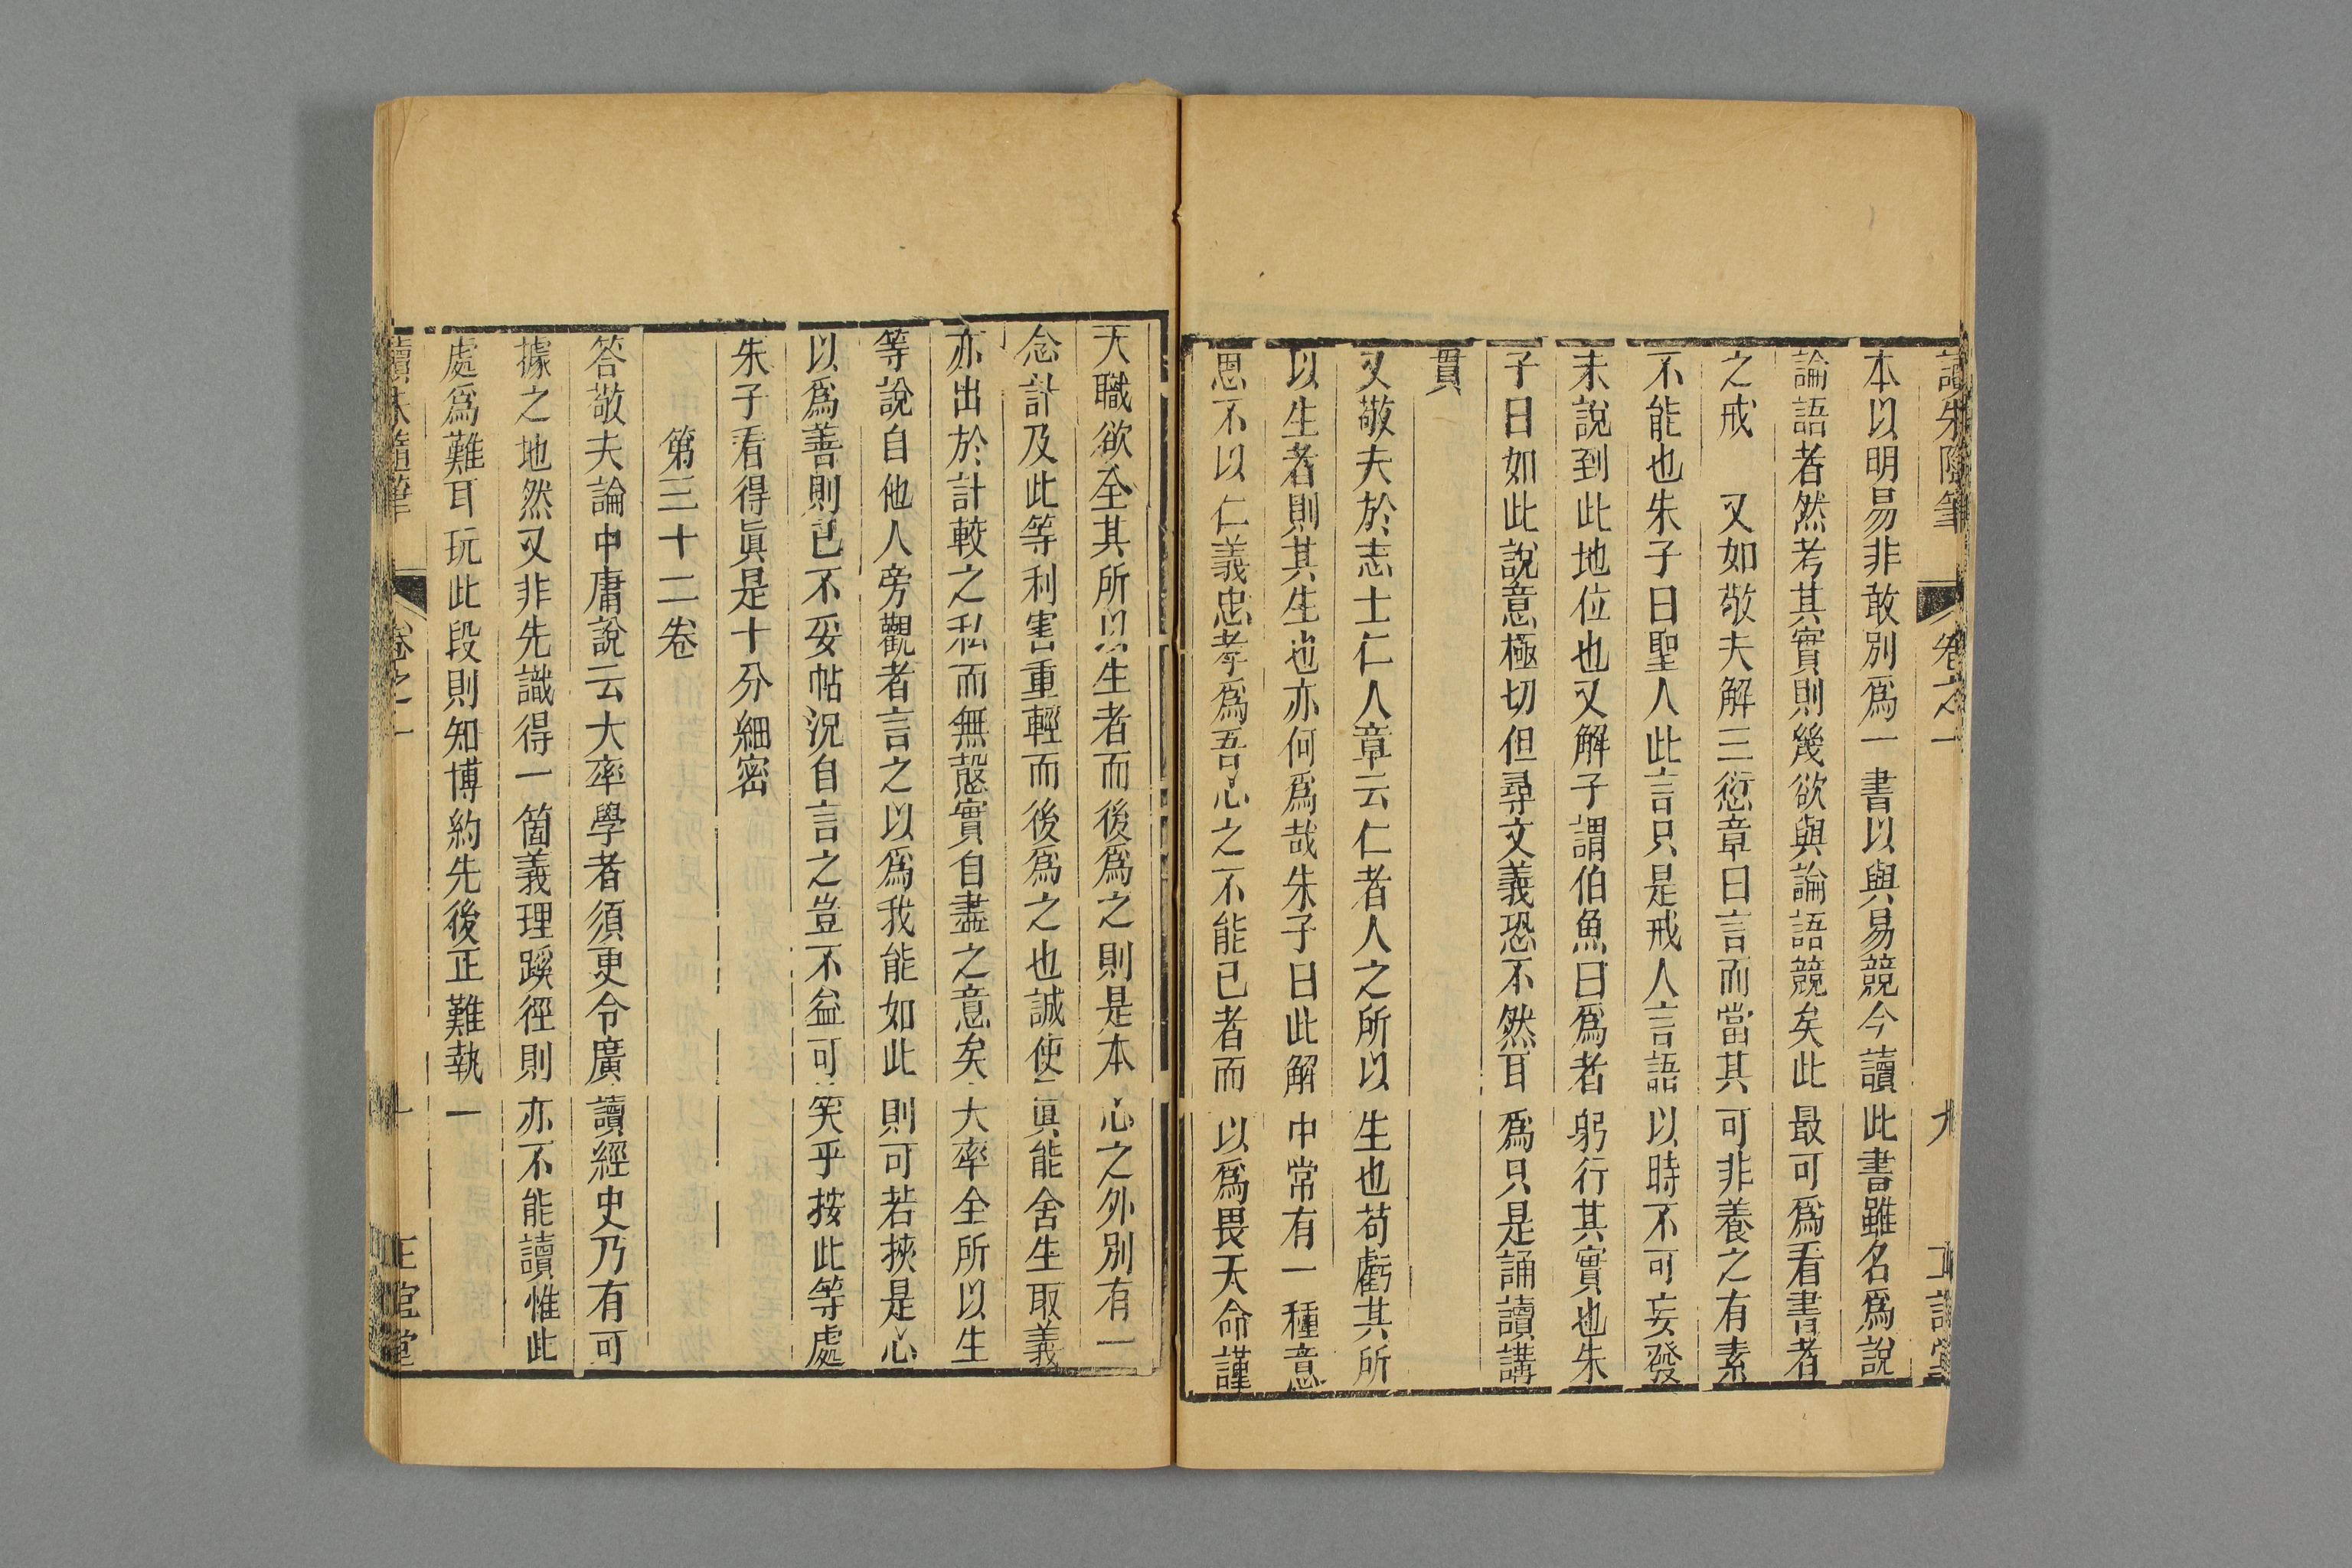 讀朱隨筆 卷之一 九 正誼堂
本以明易非敢別爲一書以與易競今讀此書雖名爲說
論語者然考其實則幾欲與論語競矣此最可爲看書者
之戒 又如敬夫解三愆章曰言而當其可非養之有素
不能也朱子曰聖人此言只是戒人言語以時不可妄發
未說到此地位也又解子謂伯魚曰爲者躬行其實也朱
子曰如此說意極切但尋文義恐不然耳爲只是誦讀講
貫
又敬夫於志士仁人章云仁者人之所以生也苟虧其所
以生者則其生也亦何爲哉朱子曰此解中常有一種意
思不以仁義忠孝爲吾心之不能已者而以爲畏天命謹
天職欲全其所以生者而後爲之則是本心之外別有一
念計及此等利害重輕而後爲之也誠使眞能舍生取義
亦出於計較之私而無慤實自盡之意矣大率全所以生
等說自他人旁觀者言之以爲我能如此則可若挾是心
以爲善則已不妥帖況自言之豈不益可笑乎按此等處
朱子看得眞是十分細密
第三十二卷
答敬夫論中庸說云大率學者須更令廣讀經史乃有可
據之地然又非先識得一箇義理蹊徑則亦不能讀惟此
處爲難耳玩此段則知博約先後正難執一
讀朱隨筆 卷之一 正誼堂